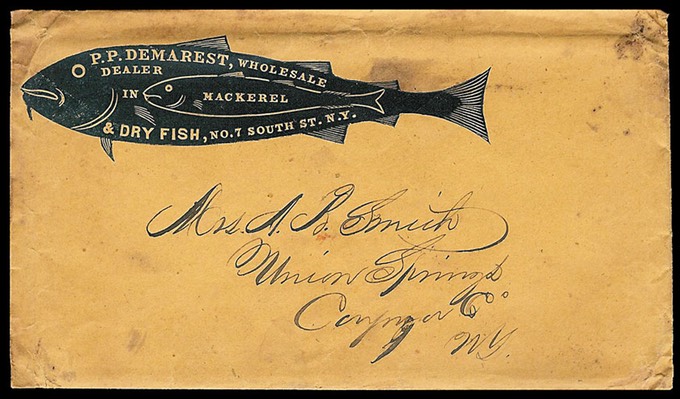 P.P. DEMAREST, WHOLESALE
DEALER
IN MACKEREL
& DRY FISH, NO. 7 SOUTH ST. N.Y.
Mrs. A. B. Smith
Union Springs
Cayuga Co
NY.